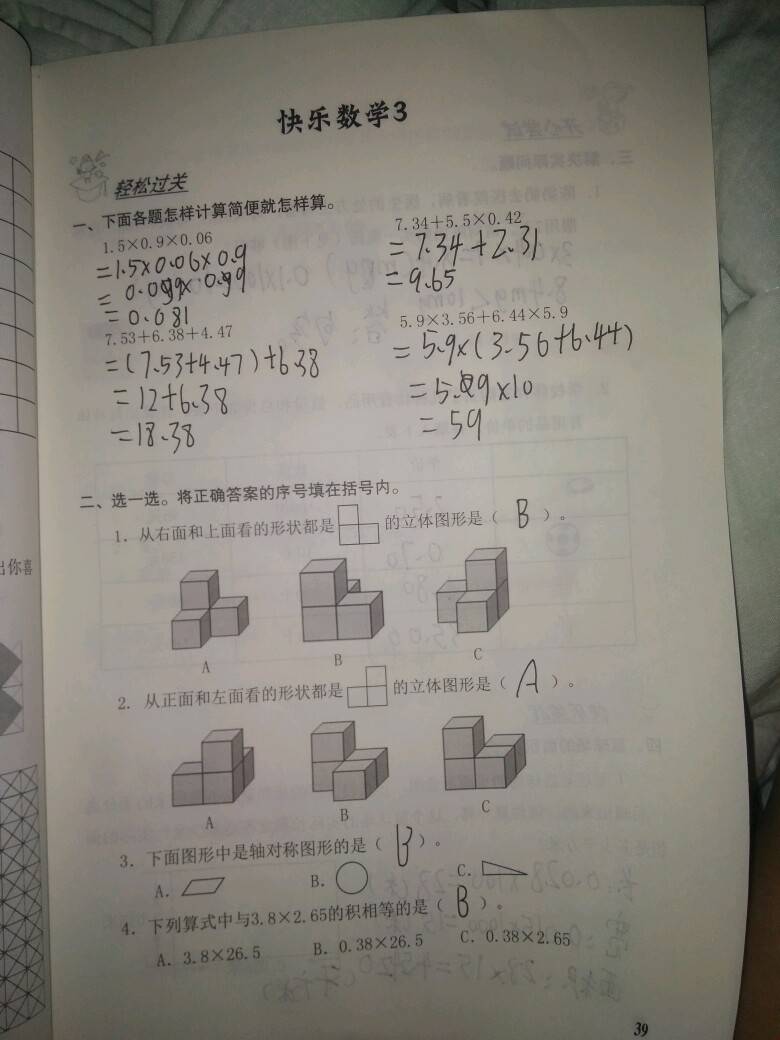 快乐数学3
轻松过关
一、下面各题怎样计算简便就怎样算。
1.5×0.9×0.06
=1.5×0.06×0.9
=0.09×0.9
=0.081
7.34+5.5×0.42
=7.34+2.31
=9.65
7.53+6.38+4.47
=(7.53+4.47)+6.38
=12+6.38
=18.38
5.9×3.56+6.44×5.9
=5.9×(3.56+6.44)
=5.9×10
=59
二、选一选。将正确答案的序号填在括号内。
1. 从右面和上面看的形状都是 的立体图形是( B )。
A B C
2. 从正面和左面看的形状都是 的立体图形是( A )。
A B C
3. 下面图形中是轴对称图形的是( B )。
A. B. C.
4. 下列算式中与3.8×2.65的积相等的是( B )。
A. 3.8×26.5 B. 0.38×26.5 C. 0.38×2.65
39
出你喜